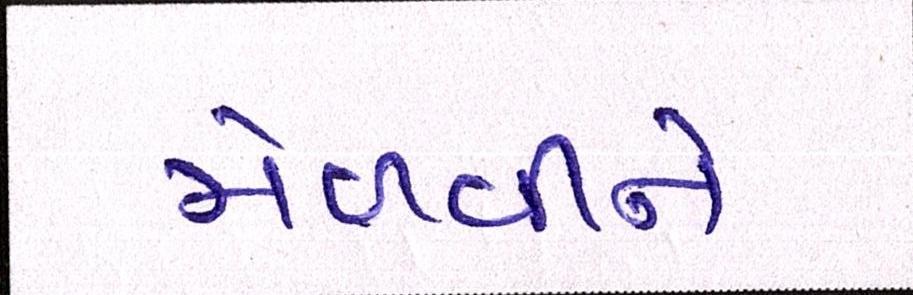 મેળવીને